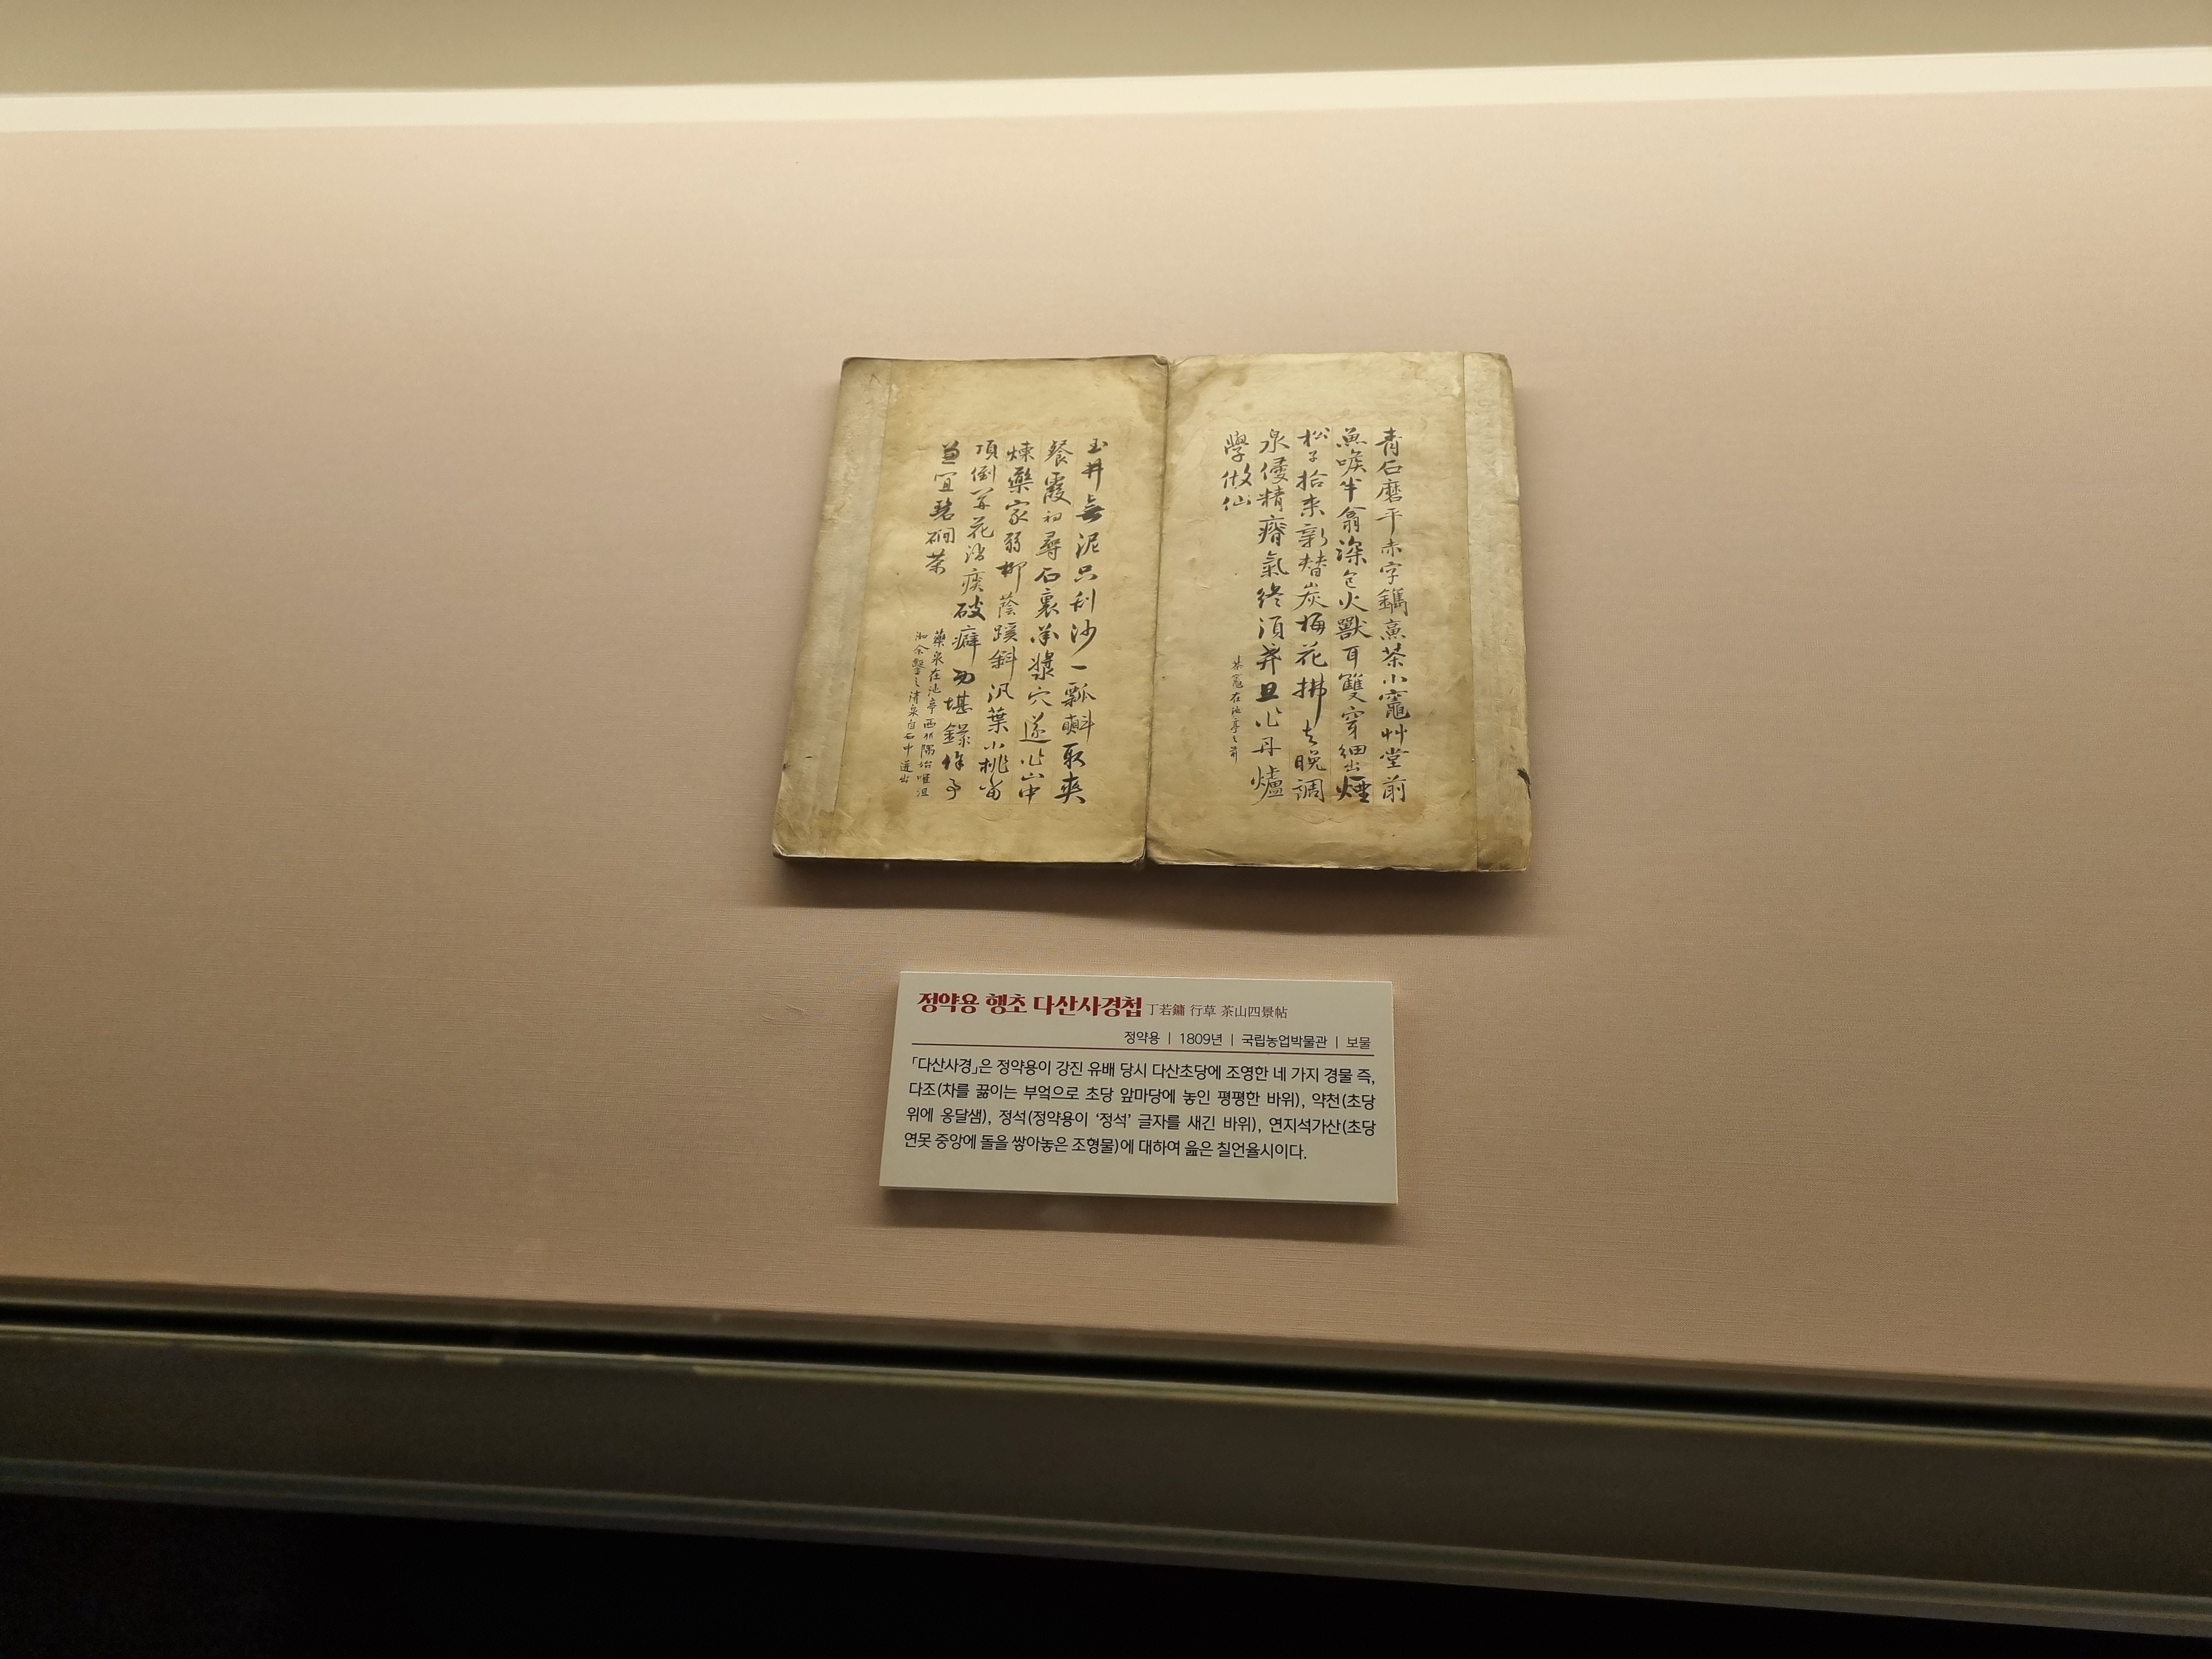 靑石磨平赤字鐫烹茶小竈艸堂前
魚喉半翕深包火獸耳雙穿細出煙
松子拾來新替炭梅花拂去晩調
泉侵精瘠氣終須弃且作丹爐
學做仙
茶竈在池亭之前
玉井無泥只刮沙一瓢㪺取爽
餐霞初尋石裏承漿穴遂作山中
煉藥家弱柳蔭蹊斜汎葉小桃當
頂倒開花消痰破癖功堪錄作事
兼宜碧磵茶
藥泉在池亭西北隅始唯沮
洳余鑿之淸泉自石中迸出
정약용 행초 다산사경첩 丁若鏞 行草 茶山四景帖
정약용 | 1809년 | 국립농업박물관 | 보물
「다산사경」은 정약용이 강진 유배 당시 다산초당에 조영한 네 가지 경물 즉,
다조(차를 끓이는 부엌으로 초당 앞마당에 놓인 평평한 바위), 약천(초당
위에 옹달샘), 정석(정약용이 ‘정석’ 글자를 새긴 바위), 연지석가산(초당
연못 중앙에 돌을 쌓아놓은 조형물)에 대하여 읊은 칠언율시이다.